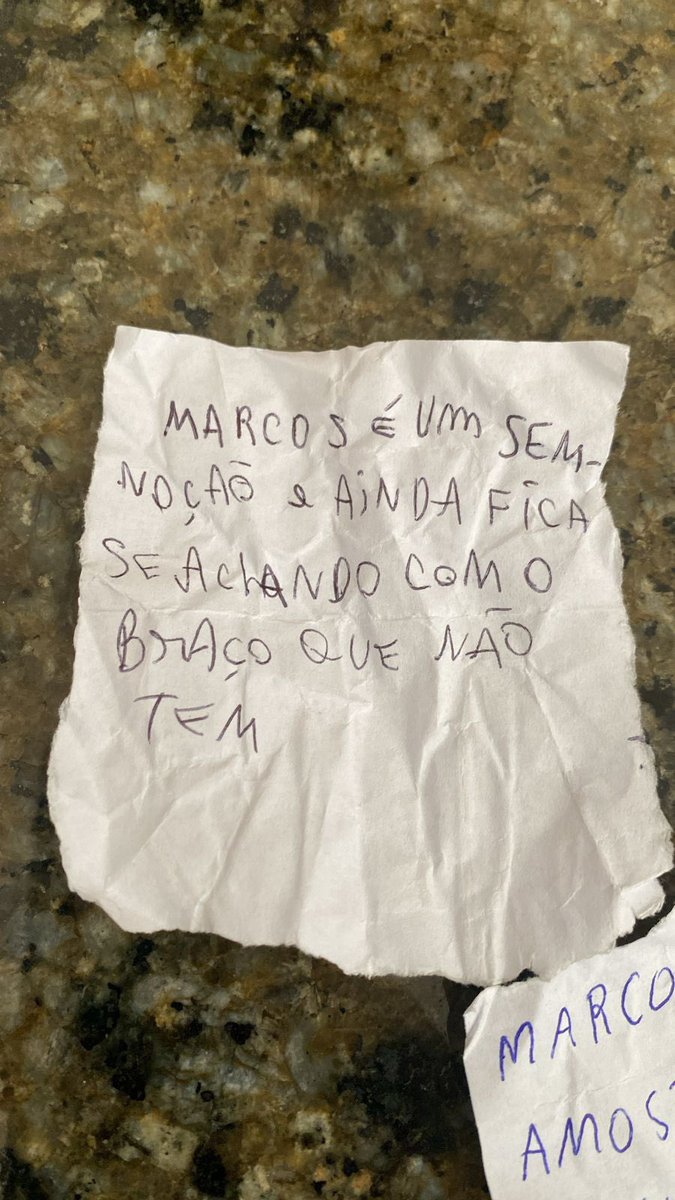 MARCOS É UM SEM-
NOÇÃO e AINDA FICA
SE ACHANDO COM O
BRAÇO QUE NÃO
TEM
MARCO
AMOS